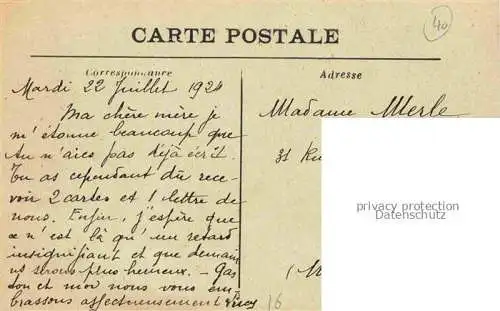 40
CARTE POSTALE
Correspondance
Adresse
Mardi 22 Juillet 1924
Ma chère mère je
m'étonne beaucoup que
tu n'aies pas déjà écrit.
Tu as cependant dû rece-
voir 2 cartes et 1 lettre de
nous. Enfin, j'espère que
ce n'est là qu'un retard
insignifiant et que demain
ns serons plus heureux. - Gas
ton et moi nous vous em-
brassons affectueusement
Madame Merle
31 Ru
privacy protection
Datenschutz
16